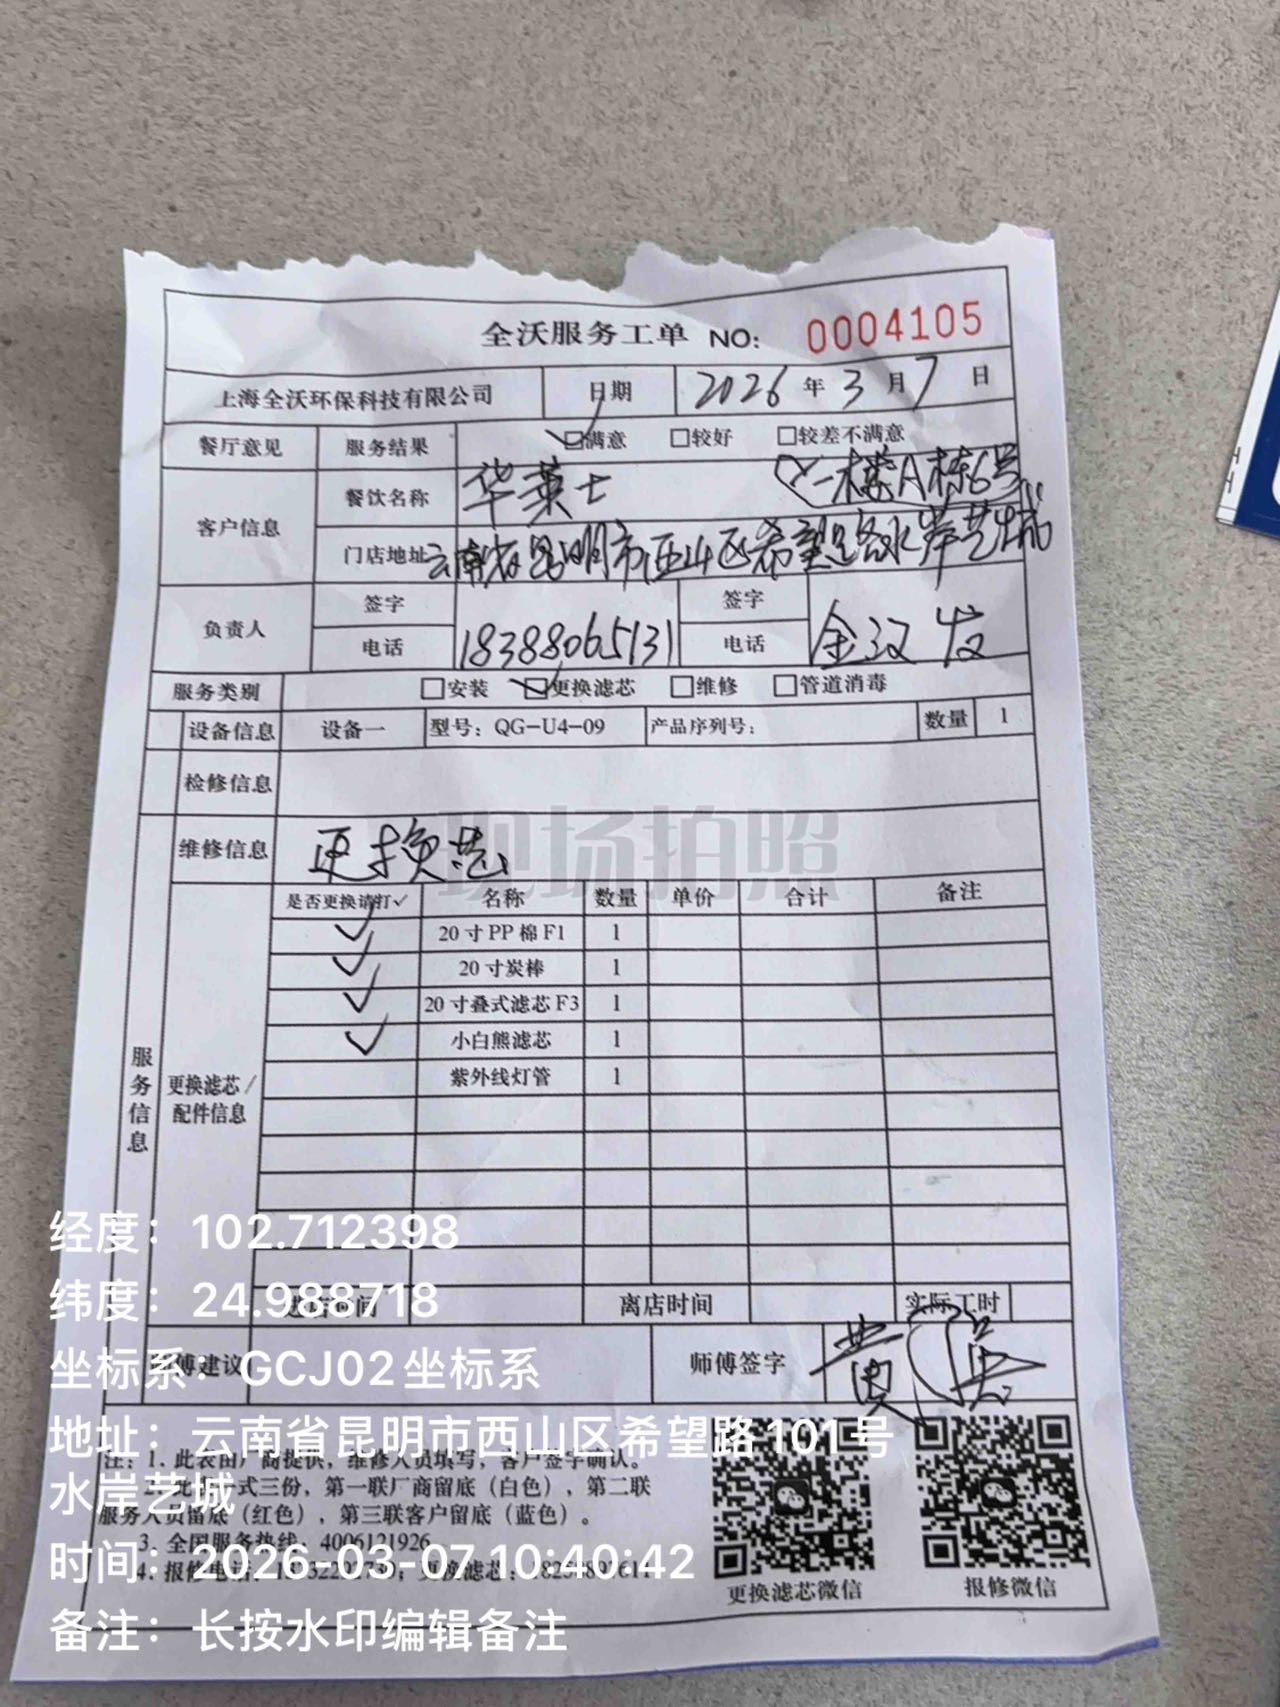 全沃服务工单 NO: 0004105
上海全沃环保科技有限公司 日期 2026 年 3 月 7 日
餐厅意见 服务结果 ☑满意 □较好 □较差不满意
客户信息 餐饮名称 华莱士 一楼A栋6号
门店地址 云南省昆明市西山区希望路水岸艺城
负责人 签字 签字
电话 18388065131 电话 金汉发
服务类别 □安装 ☑更换滤芯 □维修 □管道消毒
设备信息 设备一 型号：QG-U4-09 产品序列号： 数量 1
检修信息
维修信息 更换芯
现场拍照
是否更换请打✓ 名称 数量 单价 合计 备注
✓ 20寸PP棉F1 1
✓ 20寸炭棒 1
✓ 20寸叠式滤芯F3 1
✓ 小白熊滤芯 1
紫外线灯管 1
服务信息
更换滤芯/
配件信息
离店时间 实际工时
师傅签字 黄
注：1、此表由厂商提供，维修人员填写，客户签字确认。
式三份，第一联厂商留底（白色），第二联
服务人员留底（红色），第三联客户留底（蓝色）。
3、全国服务热线：4006121926
4、报修电话： 更换滤芯：
更换滤芯微信 报修微信
经度：102.712398
纬度：24.988718
坐标系：GCJ02坐标系
地址：云南省昆明市西山区希望路101号
水岸艺城
时间：2026-03-07 10:40:42
备注：长按水印编辑备注